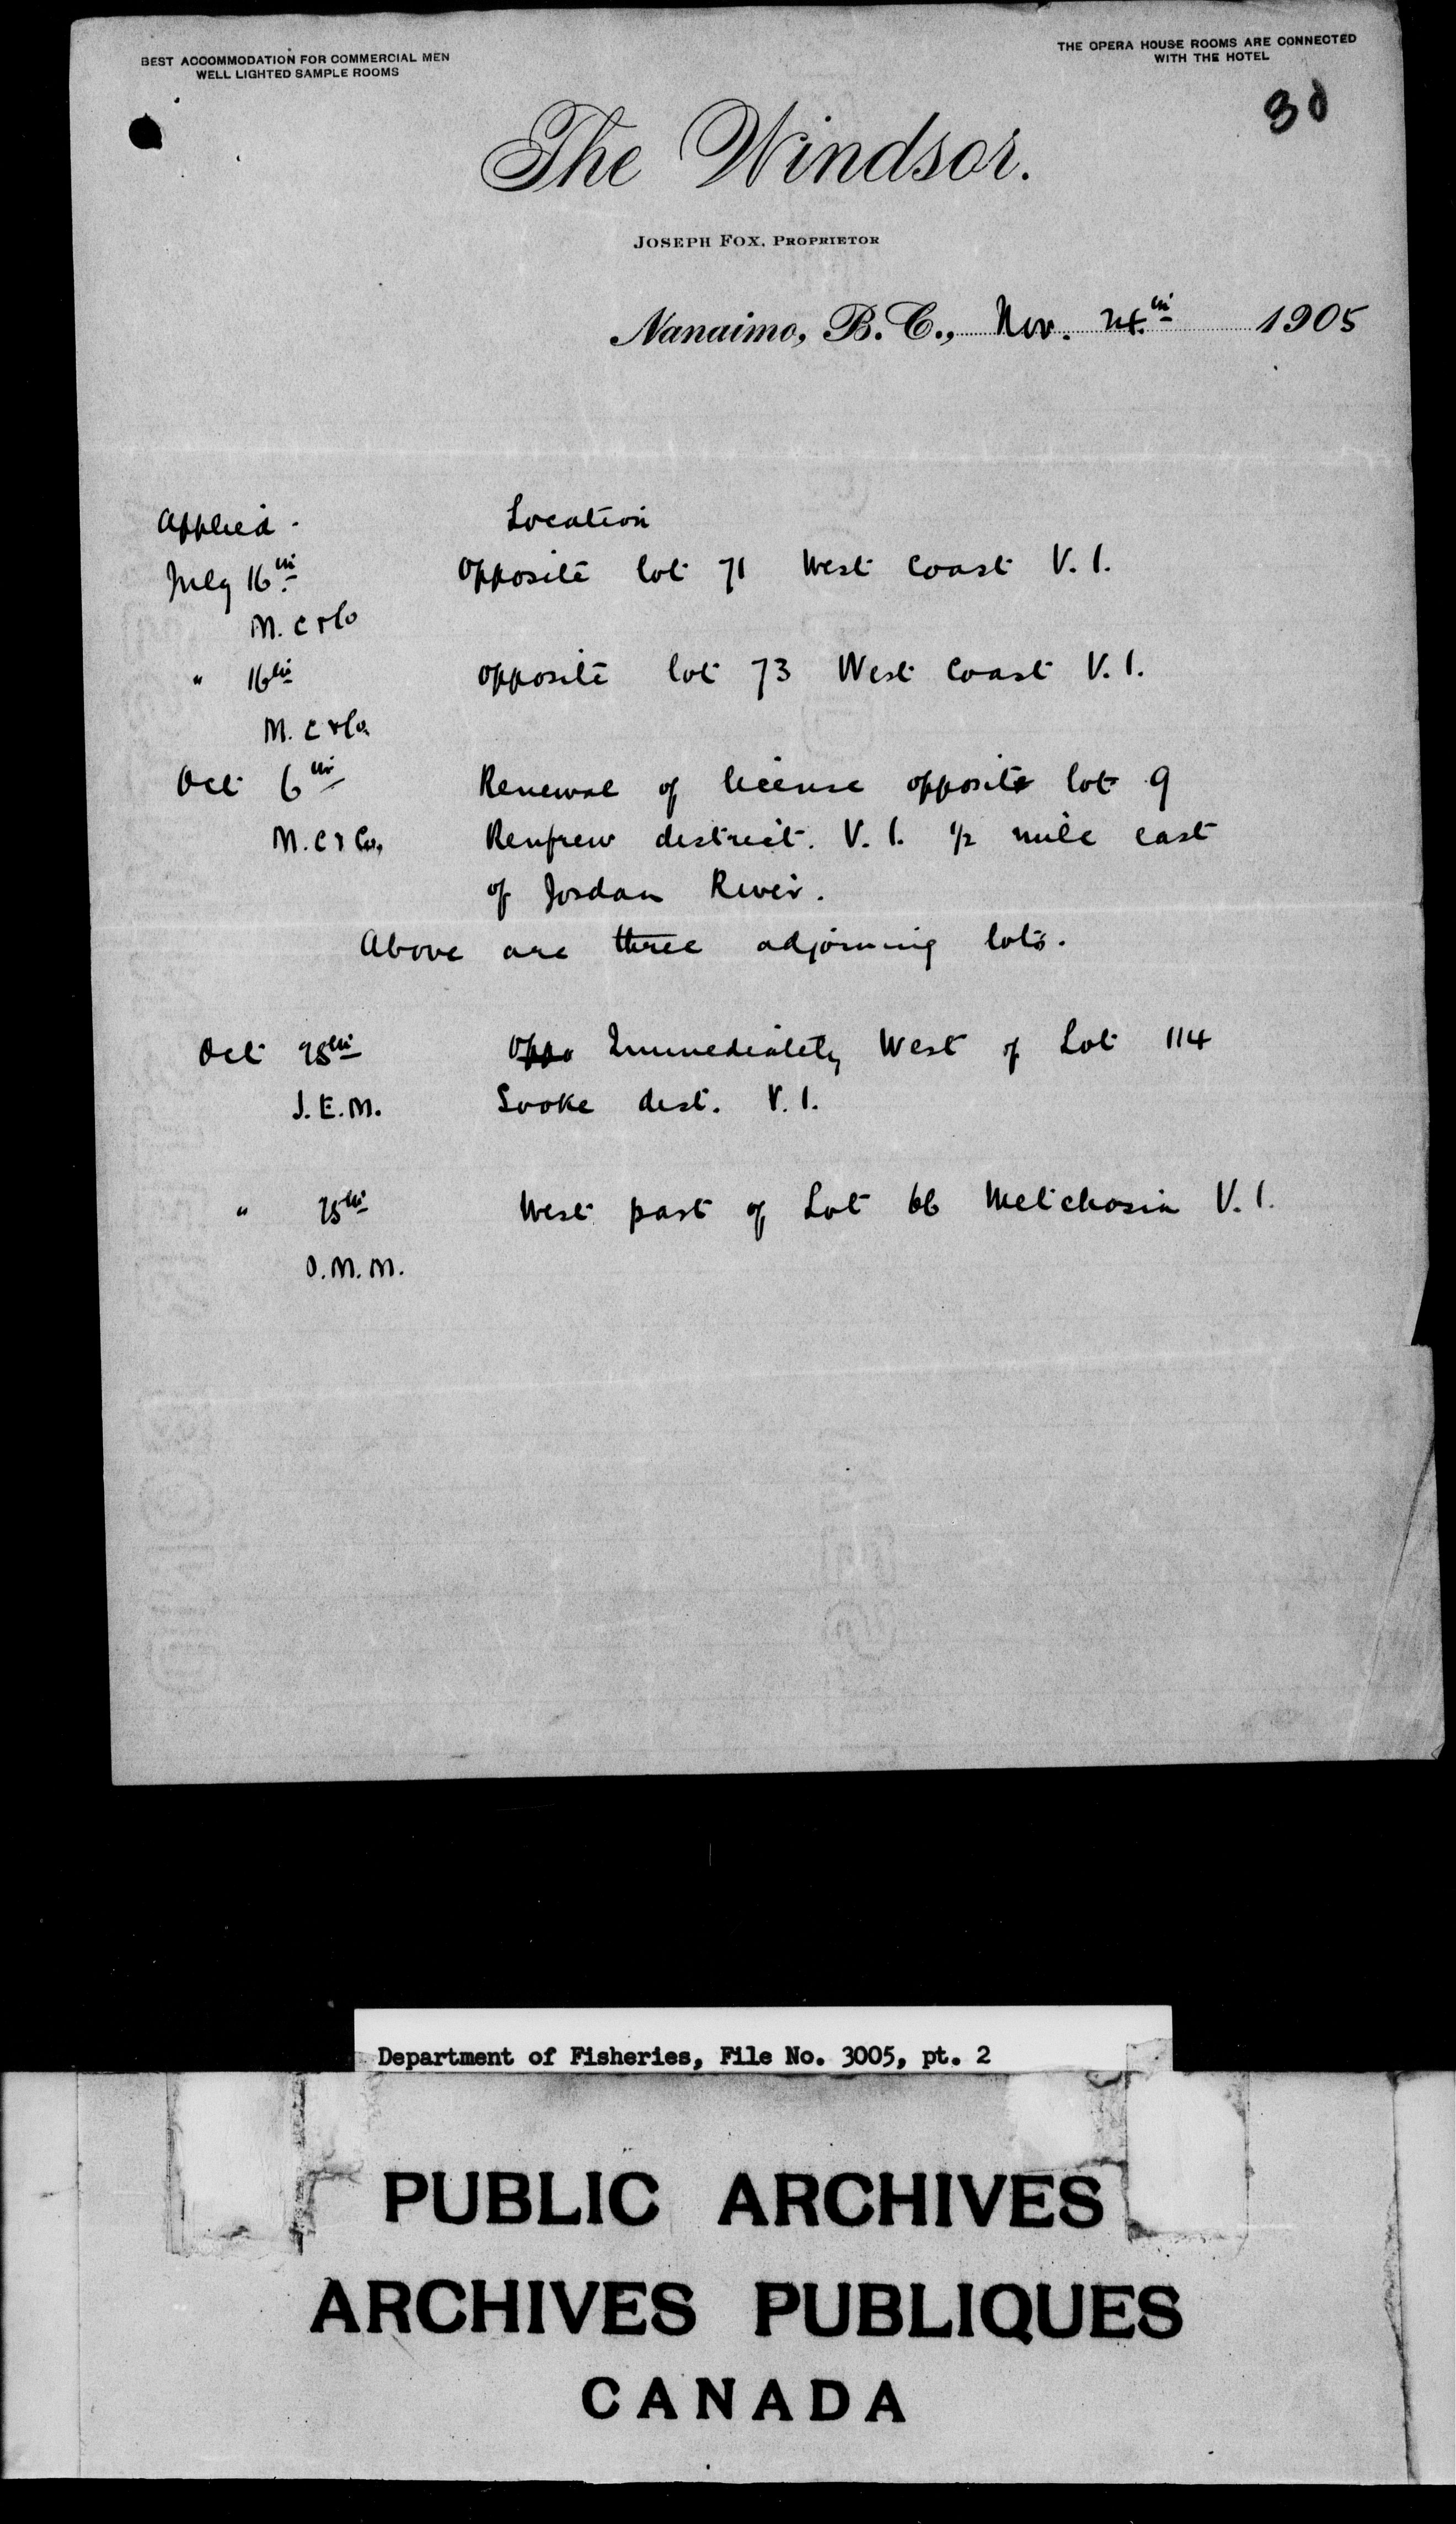 BEST ACCOMMODATION FOR COMMERCIAL MEN
WELL LIGHTED SAMPLE ROOMS
THE OPERA HOUSE ROOMS ARE CONNECTED
WITH THE HOTEL
30
The Windsor.
JOSEPH FOX, PROPRIETOR
Nanaimo, B.C., Nov. 24th 1905
Applied. Location
July 16th Opposite lot 71 West Coast V.I.
M. C & Co
" 16th opposite lot 73 West Coast V.I.
M. C & Co.
Oct 6th Renewal of license opposite lot 9
M. C & Co. Renfrew district. V.I. 1/2 mile east
of Jordan River.
Above are three adjoining lots.
Oct 25th Oppo Immediately West of Lot 114
J. E. M. Sooke dist. V.I.
" 25th West part of Lot 66 Metchosin V.I.
O. M. M.
Department of Fisheries, File No. 3005, pt. 2
PUBLIC ARCHIVES
ARCHIVES PUBLIQUES
CANADA